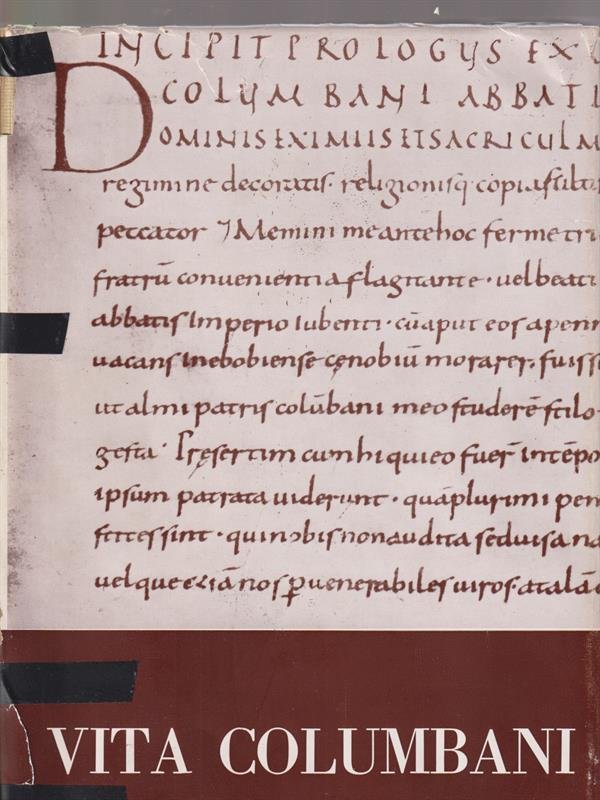 INCIPIT PROLOGUS EX
COLUMBANI ABBATI
DOMINIS EXIMIIS ET SACRI CULM
regimine decoratis· religionisq· copia fultis
peccator Memini me ante hoc ferme tri
fratrū convenientia flagitante· uel beati
abbatis Imperio Iubenti· cū aput eos apenn
uacans In ebobiense cenobiū morarer· fuisse
ut almi patris colūbani meo studerē stilo
gesta· Presertim cum hi qui eo fuer̄ in tēpo
ipsum patrata uiderunt· quāplurimi pen
sint· qui nobis non audita sed uisa na
uel que etiā nos p uenerabiles uiros· atalā
VITA COLUMBANI